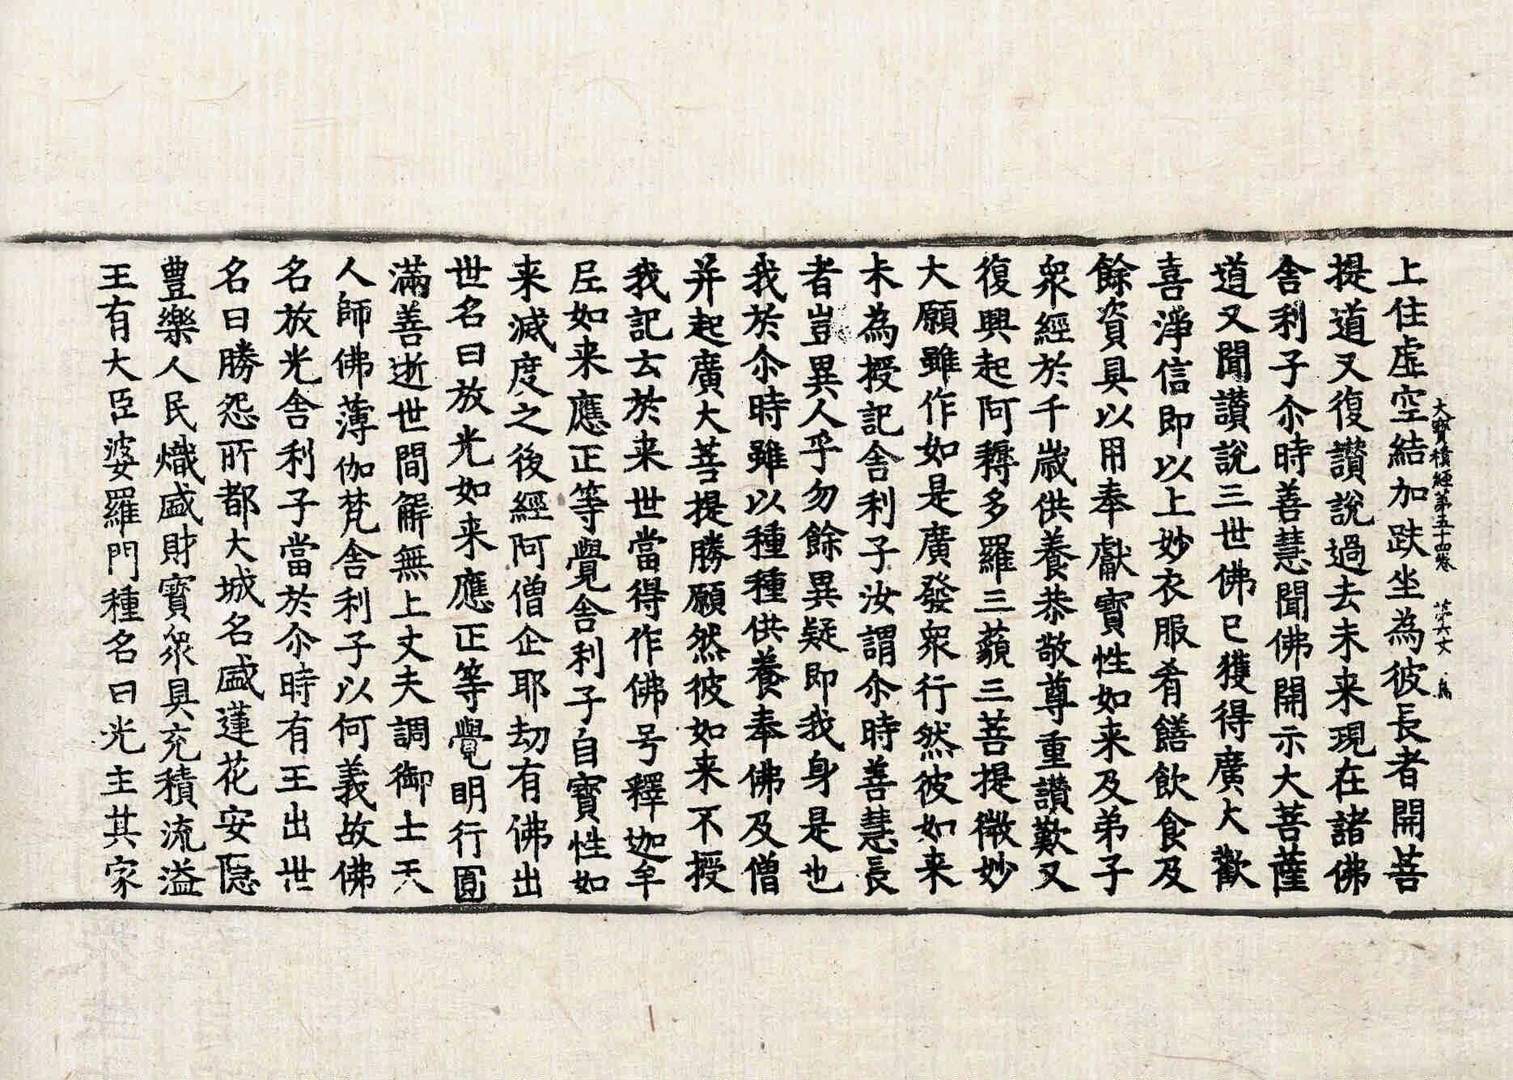 大寶積經第五十四卷 第六丈 鳥
上住虛空結加趺坐為彼長者開菩
提道又復讃說過去未来現在諸佛
舍利子尒時善慧聞佛開示大菩薩
道又聞讃說三世佛已獲得廣大歡
喜淨信即以上妙衣服肴饍飲食及
餘資具以用奉獻寶性如来及弟子
衆經於千歲供養恭敬尊重讃歎又
復興起阿耨多羅三藐三菩提微妙
大願雖作如是廣發衆行然彼如来
未為授記舍利子汝謂尒時善慧長
者豈異人乎勿餘異疑即我身是也
我於尒時雖以種種供養奉佛及僧
并起廣大菩提勝願然彼如来不授
我記云於来世當得作佛号釋迦牟
尼如来應正等覺舍利子自寶性如
来滅度之後經阿僧企耶劫有佛出
世名曰放光如来應正等覺明行圓
滿善逝世間解無上丈夫調御士天
人師佛薄伽梵舍利子以何義故佛
名放光舍利子當於尒時有王出世
名曰勝怨所都大城名盛蓮花安隱
豊樂人民熾盛財寶衆具充積流溢
王有大臣婆羅門種名曰光主其家